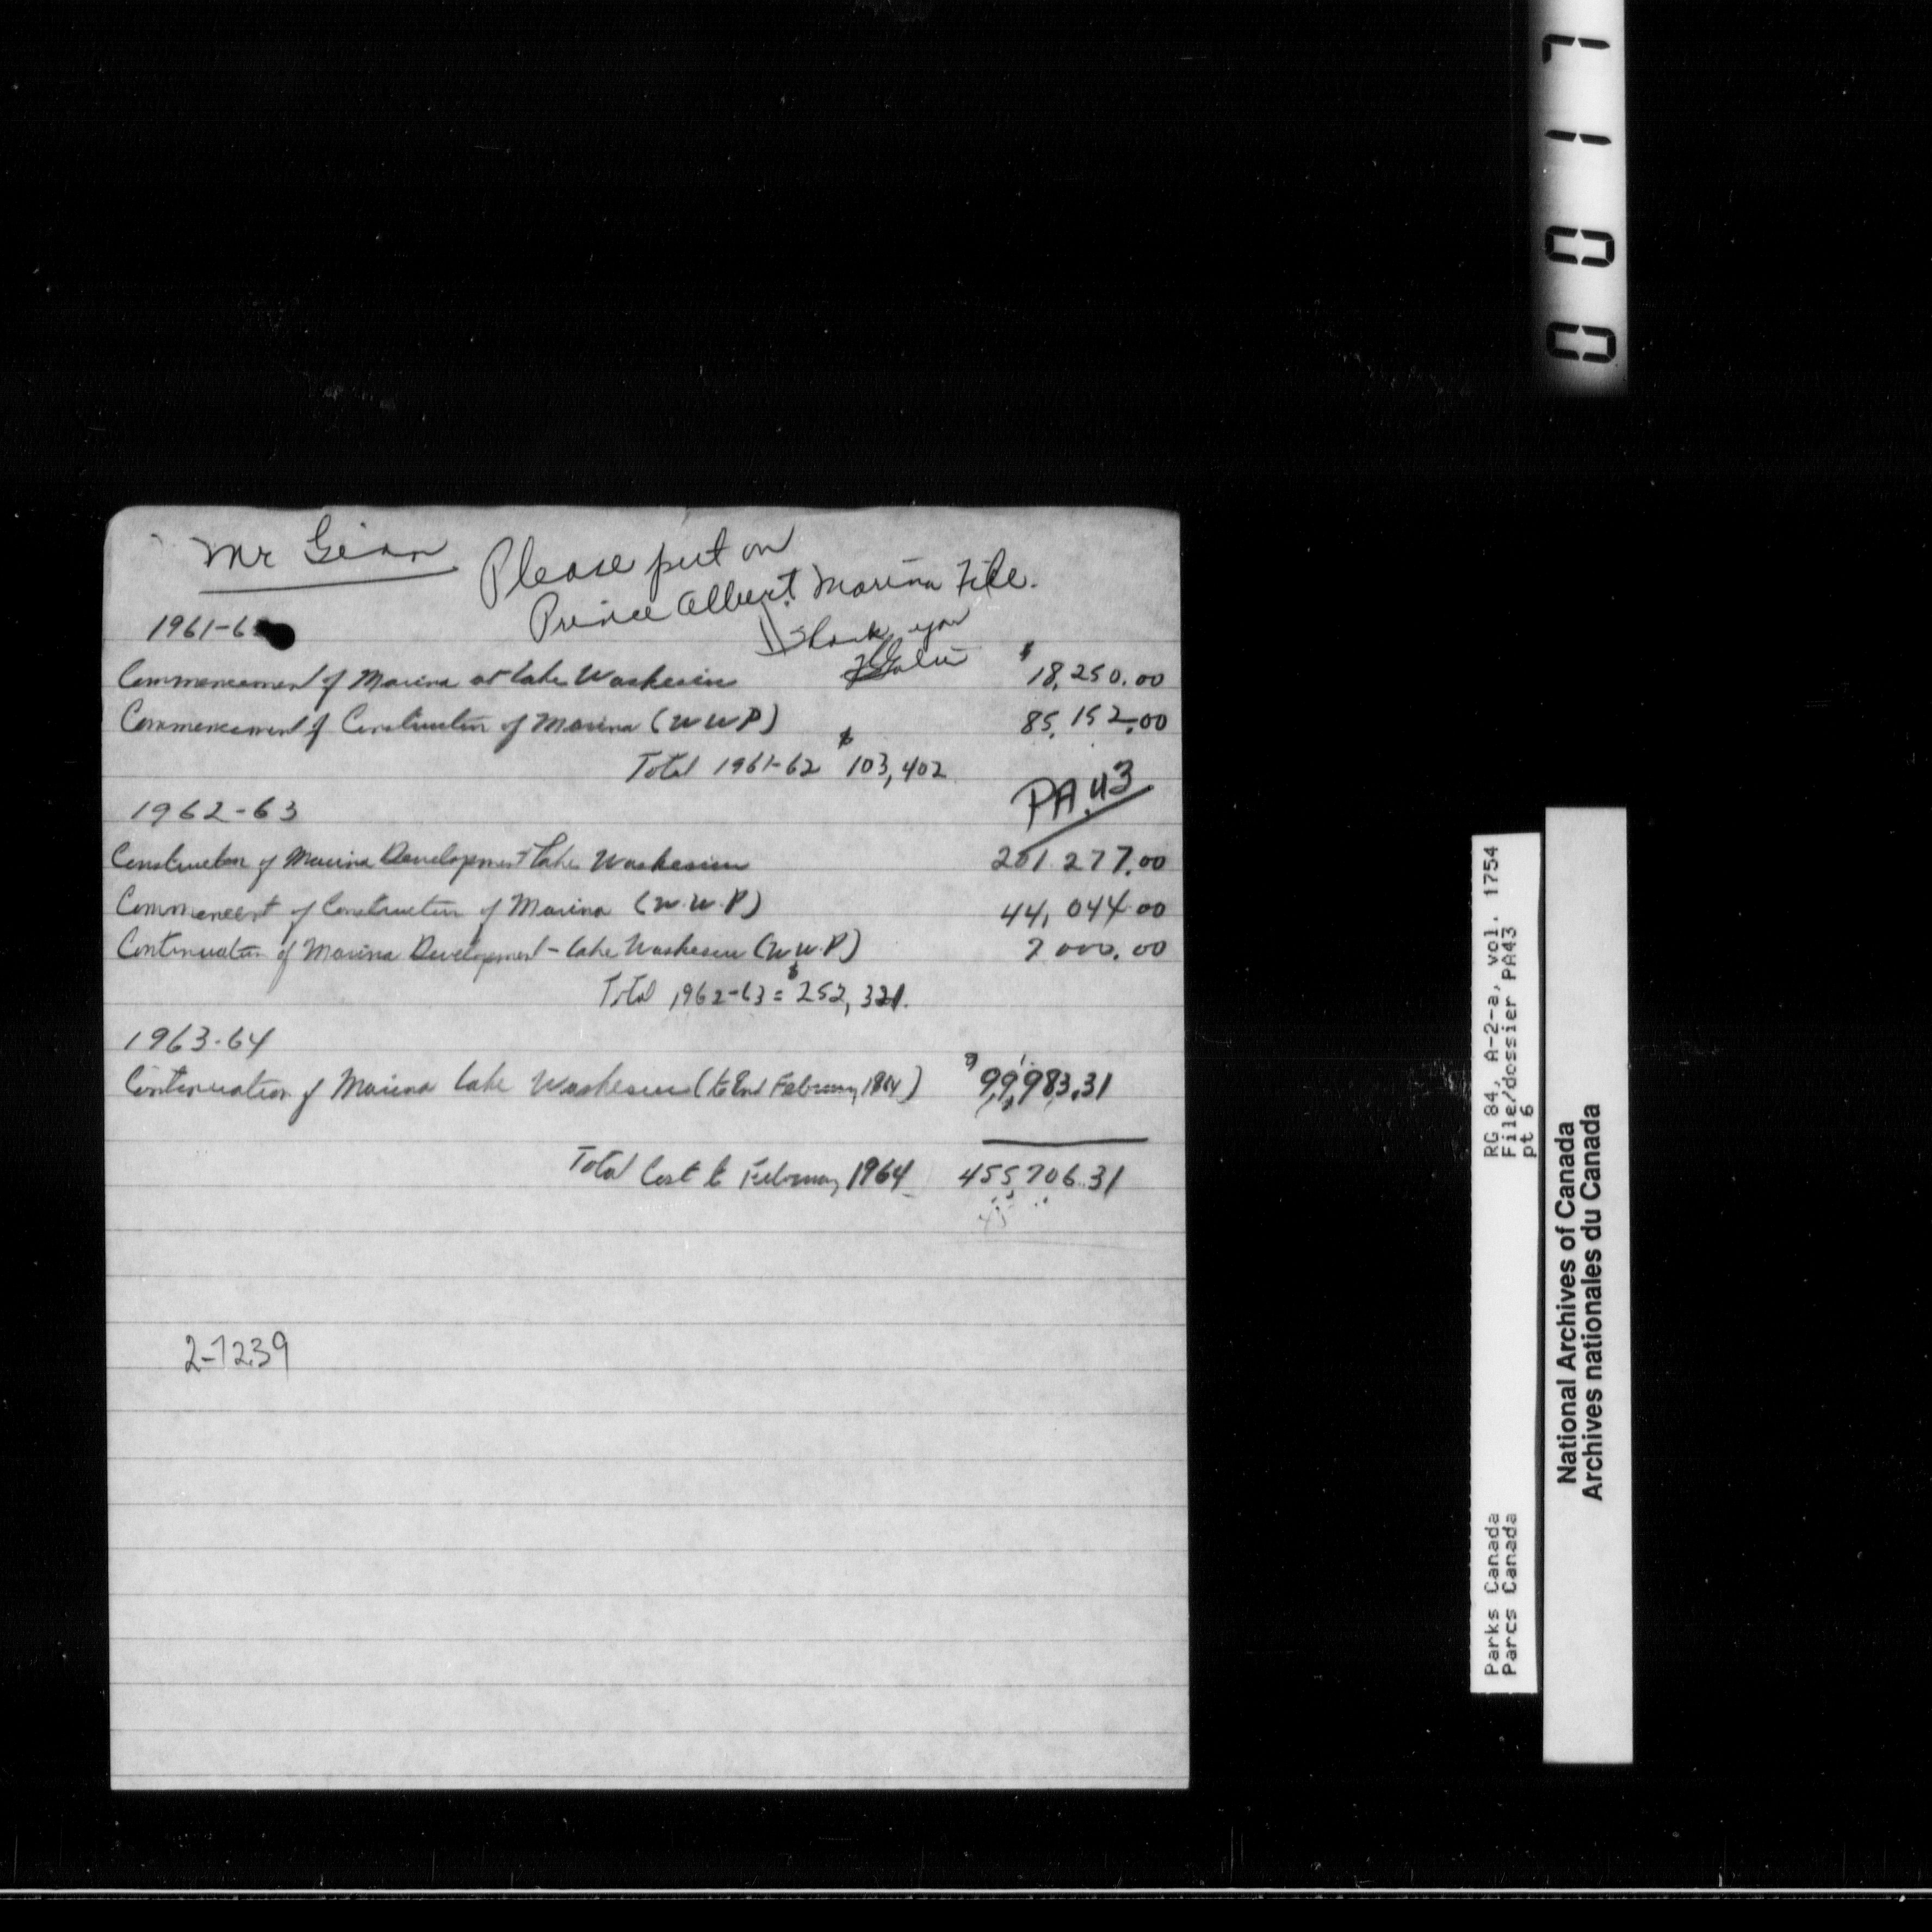 Mr
Please put on
Prince Albert Marina File.
Thank you
1961-6
Commencement of Marina at Lake Waskesiu $18,250.00
Commencement of Construction of Marina (WWP) 85,152.00
Total 1961-62 $103,402
PA.43
1962-63
Construction of Marina Development Lake Waskesiu 201 277.00
Commencemt of Construction of Marina (W.W.P) 44,044.00
Continuation of Marina Development - Lake Waskesiu (W.W.P) 7 000.00
Total 1962-63 = $252,321.
1963-64
Continuation of Marina Lake Waskesiu (to End February 1964) $99,983.31
Total Cost to February 1964 455706.31
2-7239
0017
RG 84, A-2-a, vol. 1754
File/dossier PA43
pt 6
Parks Canada
Parcs Canada
National Archives of Canada
Archives nationales du Canada